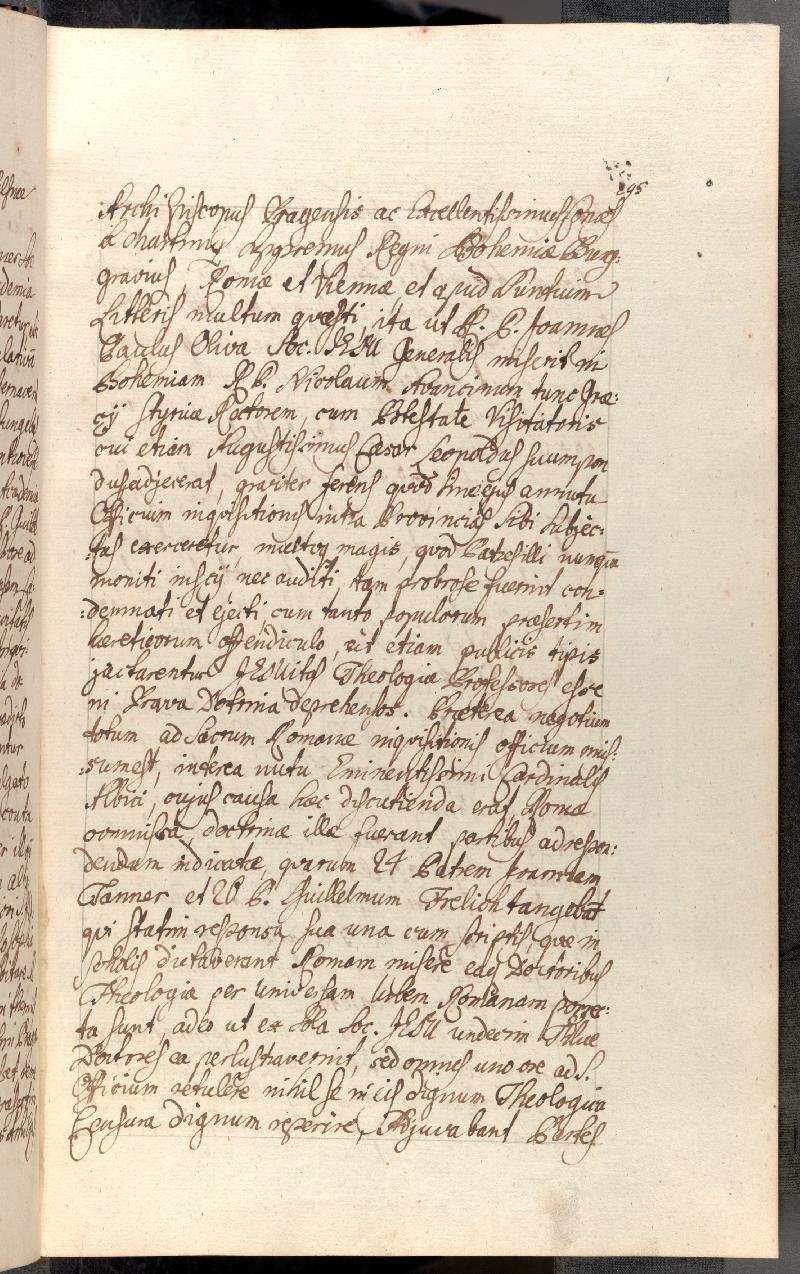 295
Archi Episcopus Pragensis ac Excellentissimus Comes
à Martiniz supremus Regni Bohemiæ Burg:
gravius, Romæ et Viennæ, et apud
Litteris multum questi, ita ut R. P. Joannes
Paulus Oliva Soc. JESU Generalis miserit in
Bohemiam R P. Nicolaum Avancinum tunc Græ:
cij Styriæ Rectorem, cum Potestate Visitatoris
cui etiam Augustissimus Cæsar Leopoldus suum pon
dus adjecerat, graviter ferens quod sine ejus annutu
Officium inquisitionis intra Provincias sibi subjec:
:tas exerceretur multoq magis, quod Patres illi nunquã
moniti inscij nec auditi, tam probrose fuerint con:
:demnati et ejecti, cum tanto populorum præsertim
hæreticorum offendiculo, ut etiam publicis tipis
jactarentur JESUitas Theologiæ Professores esse
in Prava Doctrina deprehensos. Præterea negotium
totum ad Sacrum Romanæ inquisitionis officium mis:
:sum est, interea nutu Eminentissimi Cardinalis
Albici, cujus causa hæc discutienda erat Romæ
commissa, doctrinæ illæ fuerant partibus ad respon:
dendum indicatæ, quarum 24 Patrem Joannem
Tanner et 26 P. Guilielmum Frelich tangebãt
qui statim responsa sua una cum scriptis, quæ in
scholis dictaverant Romam misere eaq Doctoribus
Theologiæ per universam Urbem Romanam porrec:
ta sunt, adeo ut ex sola Soc. JESU undecim
Doctores ea perlustraverint, sed omnes uno ore ad S.
Officium retulêre nihil se in eis dignum Theologica
Censura dignum reperire, Adjuvabant Partes